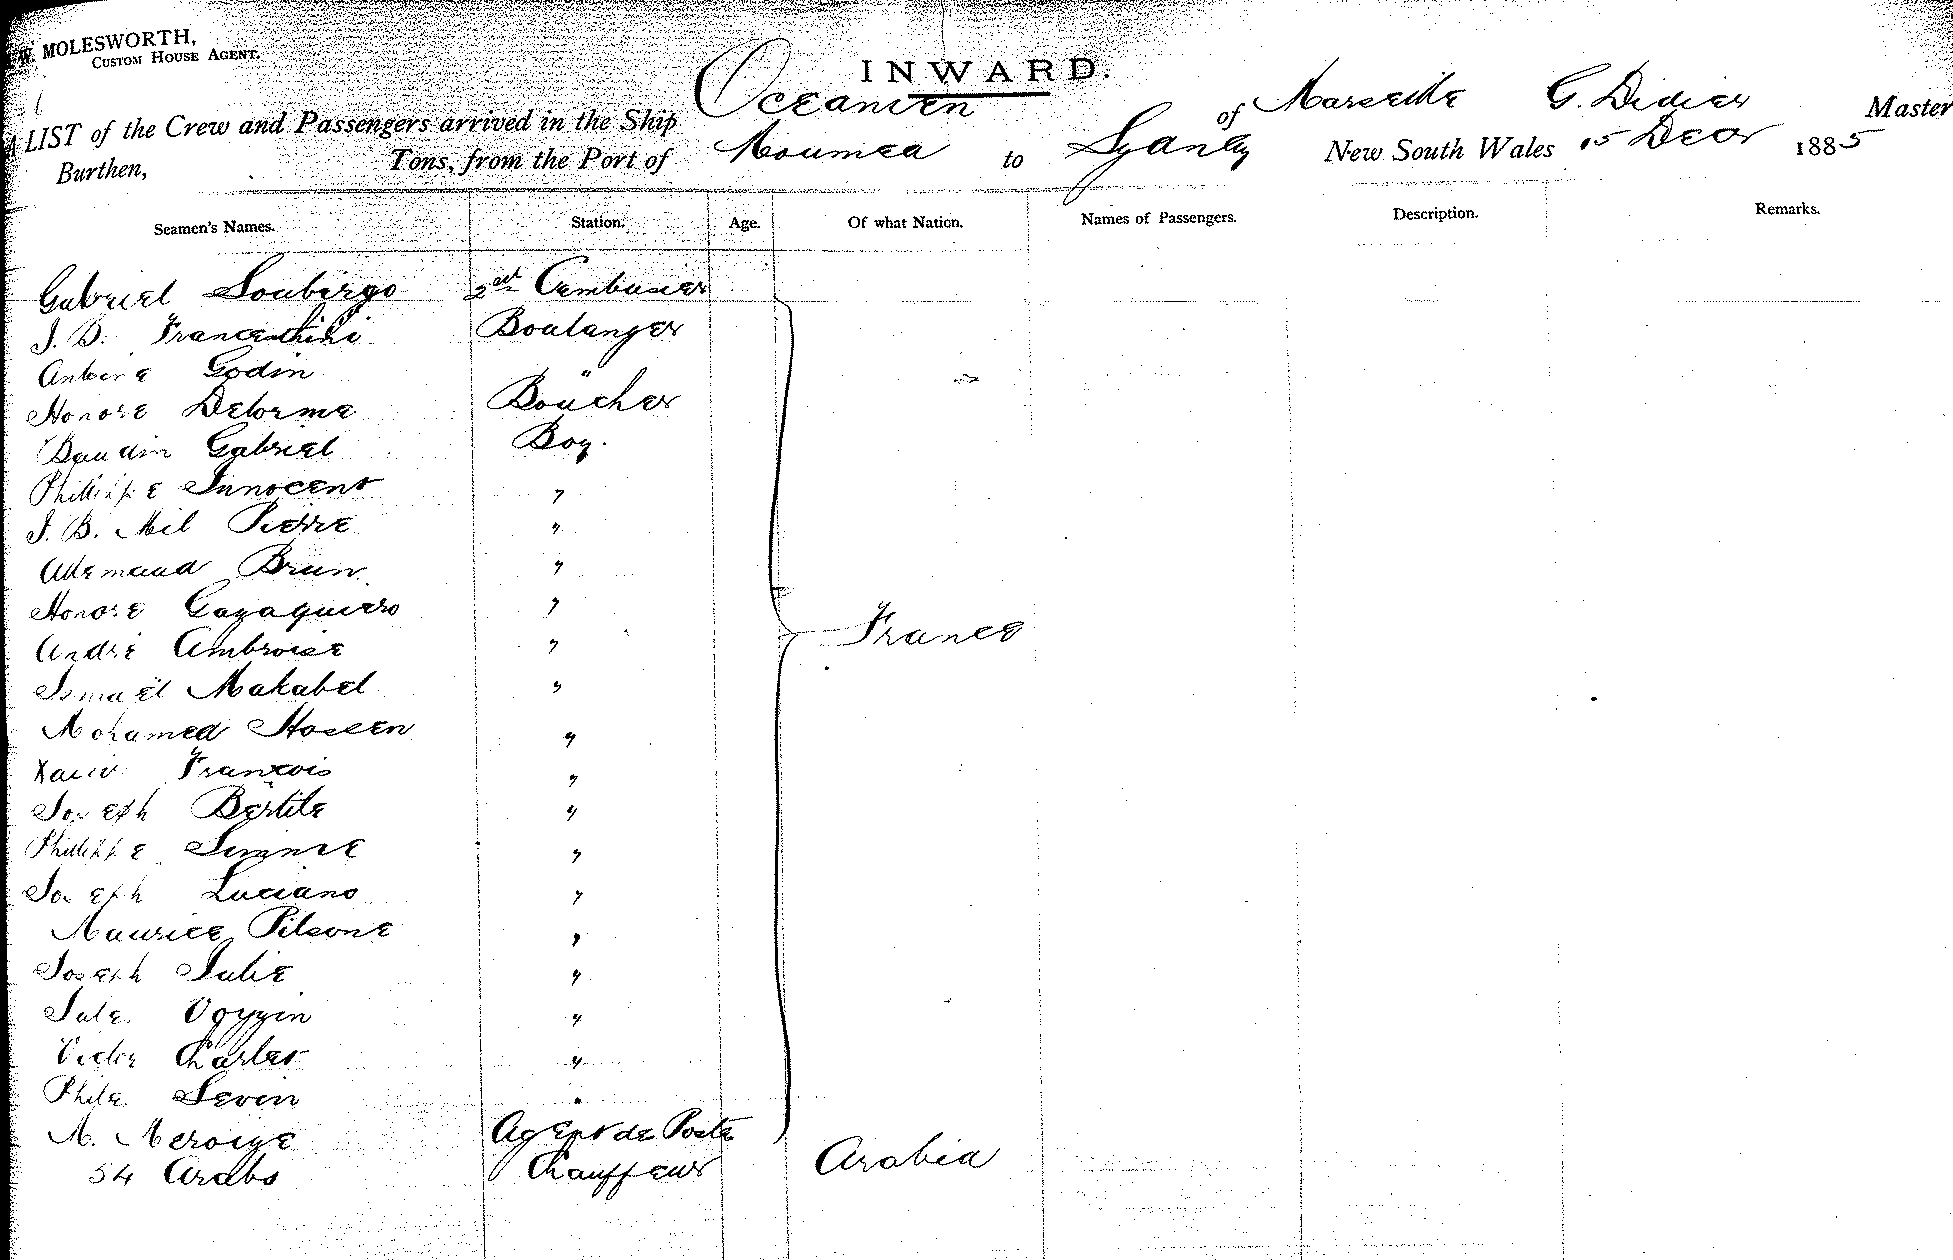 W. MOLESWORTH,
CUSTOM HOUSE AGENT.
INWARD.
A LIST of the Crew and Passengers arrived in the Ship Oceanien of Marseille G. Didier Master
Burthen, Tons, from the Port of Noumea to Sydney New South Wales 15 Decr 1885
Seamen's Names. Station. Age. Of what Nation. Names of Passengers. Description. Remarks.
Gabriel Soubirgo 2nd Cambusier
J. B. Francechini Boulanger
Godin "
Honore Delorme Boucher
Baudin Gabriel Boy.
Phillippe Innocent "
J. B. Mil Pierre "
Brun "
Honore "
André Ambroise " France
Ismaël Makabel "
Mohamed Hossen "
François "
Joseph Bertile "
Phillippe "
Joseph Luciano "
Maurice "
Joseph Julie "
Jule "
Victor Charles "
Sevin "
M. Agent de Poste
54 Arabs Chauffeur Arabia